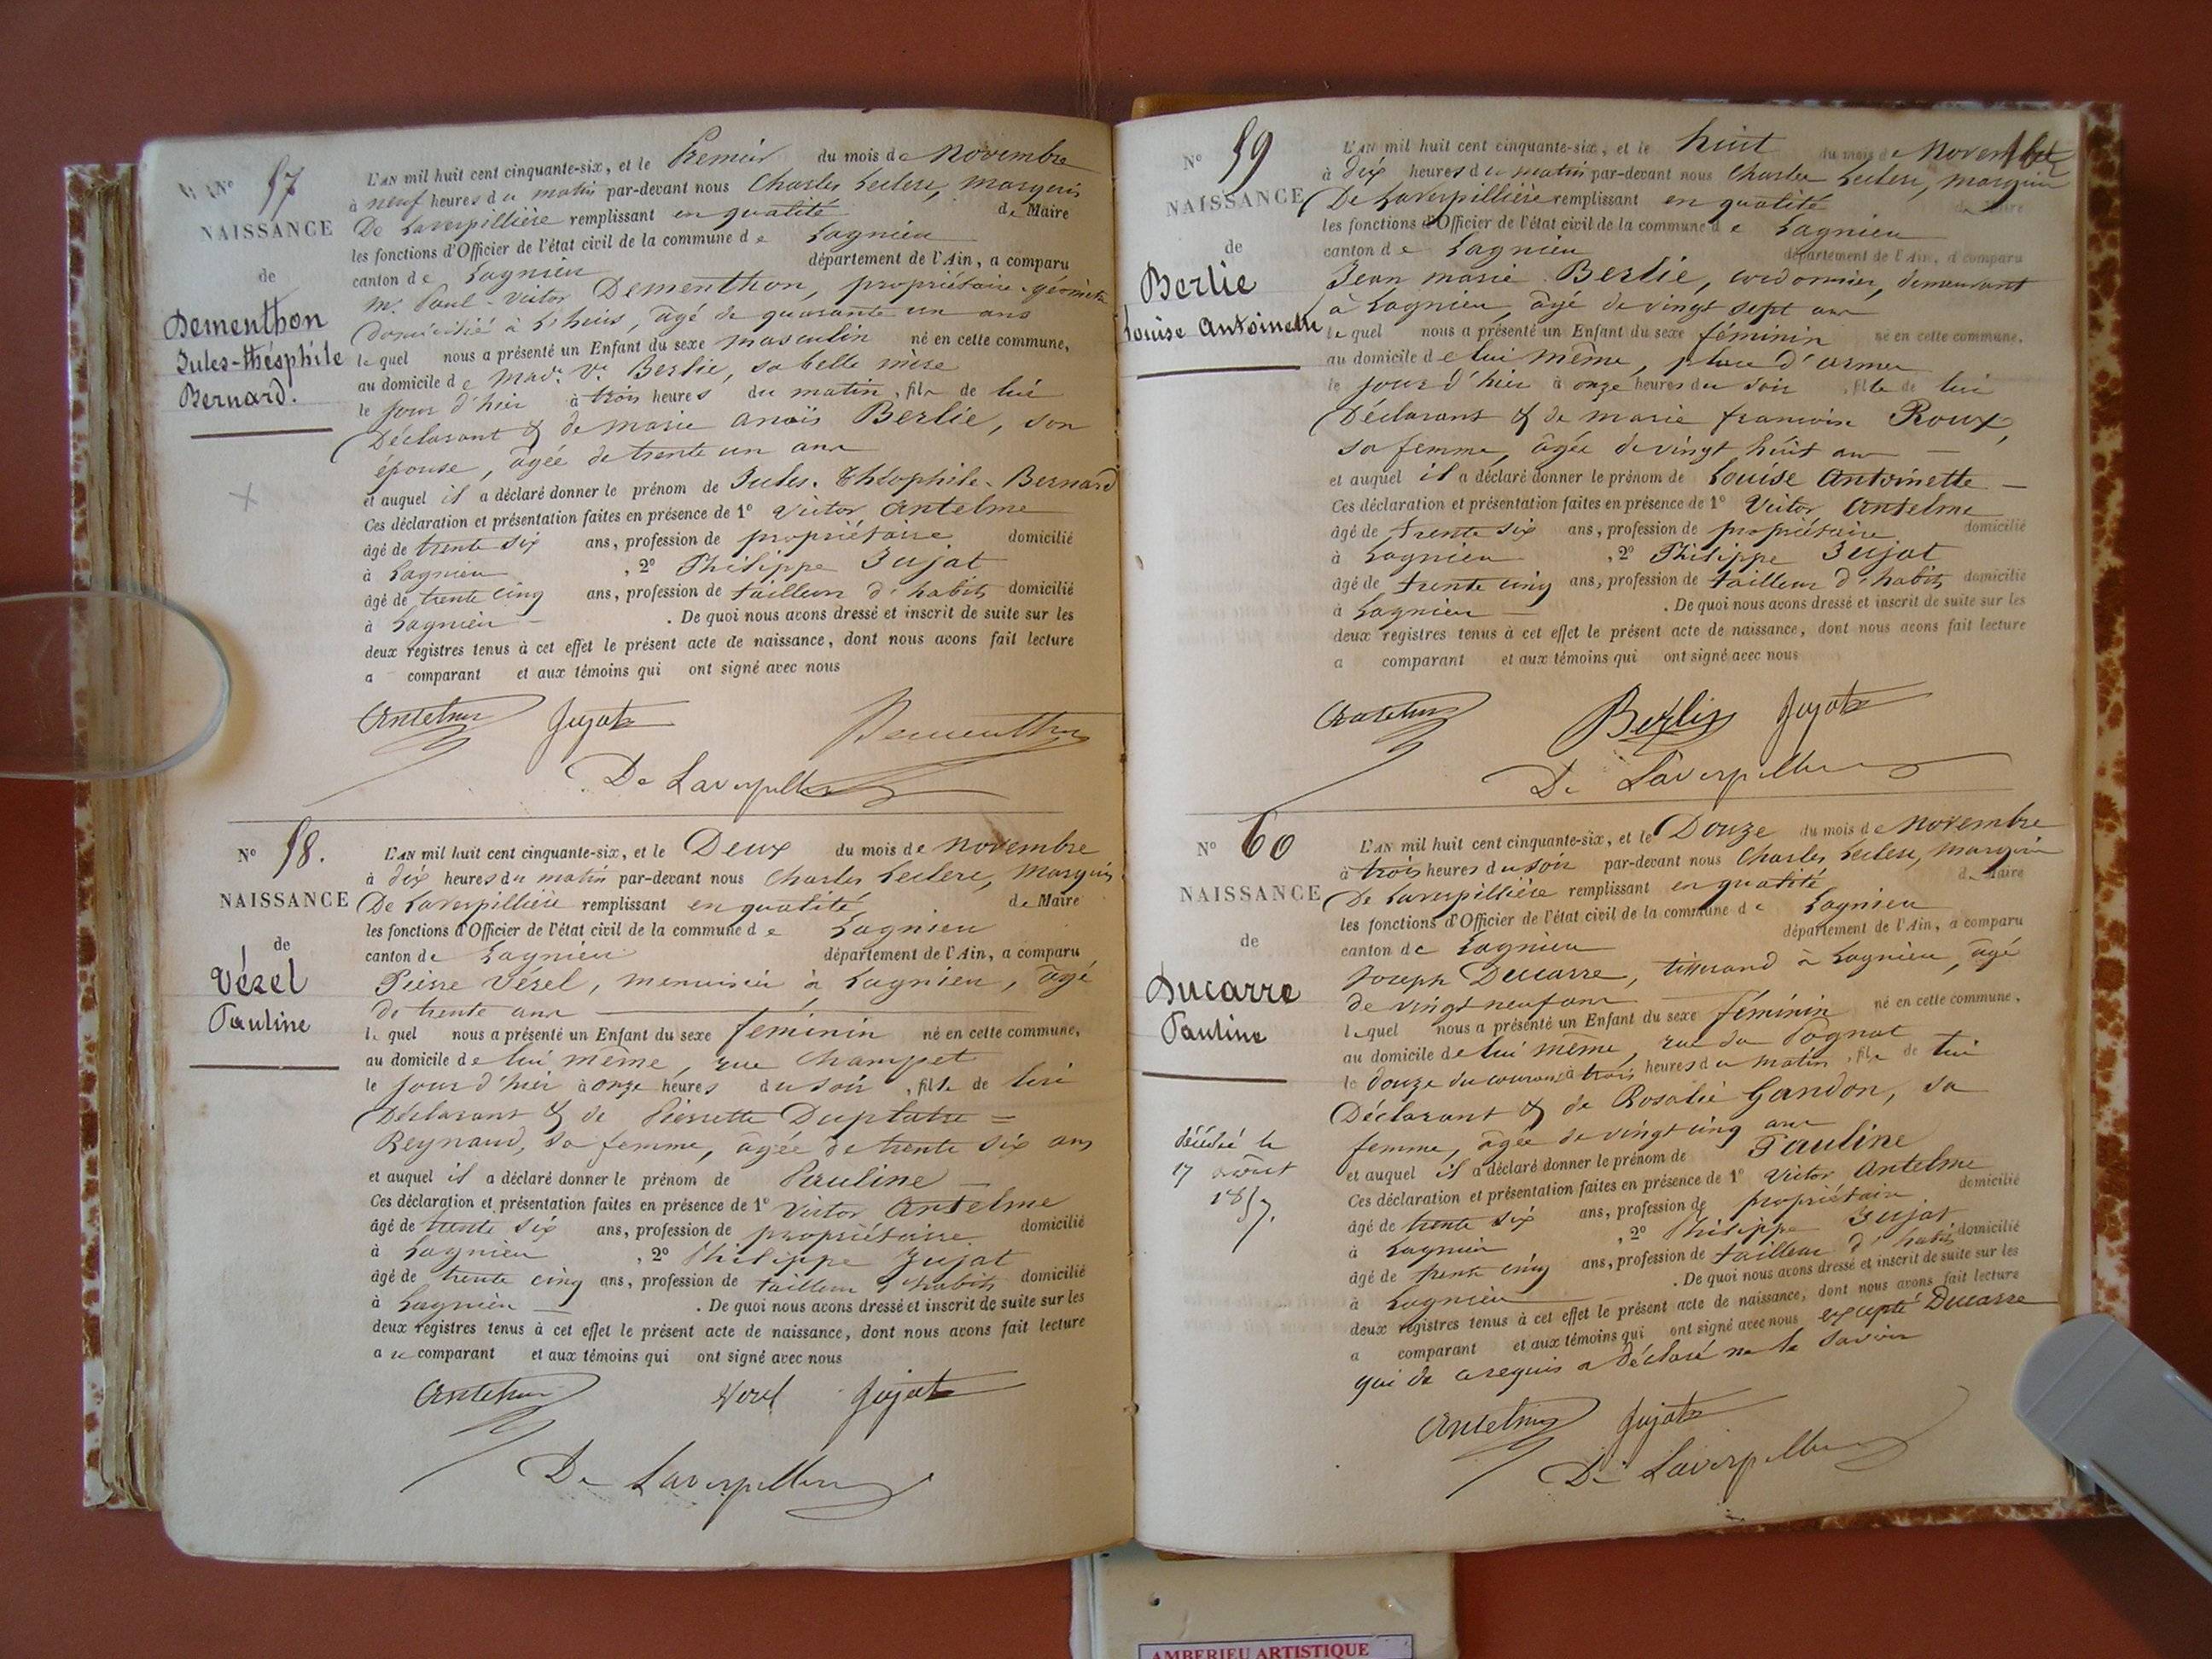 Nº 57
NAISSANCE
de
Dementhon
Jules-Théophile
Bernard.
L'AN mil huit cent cinquante-six, et le Premier du mois de Novembre
à neuf heures du matin par-devant nous Charles Leclerc, Marquis
De Laverpillière remplissant en qualité de Maire
les fonctions d'Officier de l'état civil de la commune de Lagnieu
canton de Lagnieu département de l'Ain, a comparu
Mr. Paul-Victor Dementhon, propriétaire-géomètre
domicilié à L'huis, âgé de quarante un ans
lequel nous a présenté un Enfant du sexe masculin né en cette commune,
au domicile de Mad. Ve. Berlie, sa belle mère
le jour d'hier à trois heures du matin, fils de lui
Déclarant & de marie anaïs Berlie, son
épouse, âgée de trente un ans
et auquel il a déclaré donner le prénom de Jules-Théophile-Bernard
Ces déclaration et présentation faites en présence de 1º Victor Antelme
âgé de trente six ans, profession de propriétaire domicilié
à Lagnieu , 2º Philippe Jujat
âgé de trente cinq ans, profession de tailleur d'habits domicilié
à Lagnieu - . De quoi nous avons dressé et inscrit de suite sur les
deux registres tenus à cet effet le présent acte de naissance, dont nous avons fait lecture
a comparant et aux témoins qui ont signé avec nous
Antelme Jujat Dementhon
De Laverpillière
Nº 58.
NAISSANCE
de
Vézel
Pauline
L'AN mil huit cent cinquante-six, et le Deux du mois de Novembre
à dix heures du matin par-devant nous Charles Leclerc, Marquis
De Laverpillière remplissant en qualité de Maire
les fonctions d'Officier de l'état civil de la commune de Lagnieu
canton de Lagnieu département de l'Ain, a comparu
Pierre Vézel, menuisier à Lagnieu, âgé
de trente ans
lequel nous a présenté un Enfant du sexe féminin né en cette commune,
au domicile de lui même, rue Champet
le jour d'hier à onze heures du soir, fille de lui
Déclarant & de Pierrette Duplatre =
Reynaud, sa femme, âgée de trente six ans
et auquel il a déclaré donner le prénom de Pauline -
Ces déclaration et présentation faites en présence de 1º Victor Antelme
âgé de trente six ans, profession de propriétaire domicilié
à Lagnieu , 2º Philippe Jujat
âgé de trente cinq ans, profession de tailleur d'habits domicilié
à Lagnieu - . De quoi nous avons dressé et inscrit de suite sur les
deux registres tenus à cet effet le présent acte de naissance, dont nous avons fait lecture
a u comparant et aux témoins qui ont signé avec nous
Antelme Vezel Jujat
De Laverpillière
Nº 59
NAISSANCE
de
Berlie
Louise Antoinette
L'AN mil huit cent cinquante-six, et le huit du mois de Novembre
à dix heures du matin par-devant nous Charles Leclerc, marquis
De Laverpillière remplissant en qualité de Maire
les fonctions d'Officier de l'état civil de la commune de Lagnieu
canton de Lagnieu département de l'Ain, a comparu
Jean marie Berlie, cordonnier, demeurant
à Lagnieu, âgé de vingt sept ans
lequel nous a présenté un Enfant du sexe féminin né en cette commune,
au domicile de lui même, place d'armes
le jour d'hier à onze heures du soir, fille de lui
Déclarant & de marie françoise Roux,
sa femme, âgée de vingt huit ans -
et auquel il a déclaré donner le prénom de Louise Antoinette -
Ces déclaration et présentation faites en présence de 1º Victor Antelme
âgé de trente six ans, profession de propriétaire domicilié
à Lagnieu , 2º Philippe Jujat
âgé de trente cinq ans, profession de tailleur d'habits domicilié
à Lagnieu - . De quoi nous avons dressé et inscrit de suite sur les
deux registres tenus à cet effet le présent acte de naissance, dont nous avons fait lecture
a comparant et aux témoins qui ont signé avec nous
Antelme Berlie Jujat
De Laverpillière
Nº 60
NAISSANCE
de
Ducarre
Pauline
décédée le
17 août
1857.
L'AN mil huit cent cinquante-six, et le Douze du mois de Novembre
à trois heures du soir par-devant nous Charles Leclerc, Marquis
De Laverpillière remplissant en qualité de Maire
les fonctions d'Officier de l'état civil de la commune de Lagnieu
canton de Lagnieu département de l'Ain, a comparu
Joseph Ducarre, tisserand à Lagnieu, âgé
de vingt neuf ans
lequel nous a présenté un Enfant du sexe féminin né en cette commune,
au domicile de lui même, rue du Pognat
le douze du courant à trois heures du matin, fille de lui
Déclarant & de Rosalie Gandon, sa
femme, âgée de vingt cinq ans
et auquel il a déclaré donner le prénom de Pauline
Ces déclaration et présentation faites en présence de 1º Victor Antelme
âgé de trente six ans, profession de propriétaire domicilié
à Lagnieu , 2º Philippe Jujat
âgé de trente cinq ans, profession de tailleur d'habits domicilié
à Lagnieu . De quoi nous avons dressé et inscrit de suite sur les
deux registres tenus à cet effet le présent acte de naissance, dont nous avons fait lecture
a comparant et aux témoins qui ont signé avec nous excepté Ducarre
qui de ce requis a déclaré ne le savoir
Antelme Jujat
De Laverpillière
AMBERIEU ARTISTIQUE